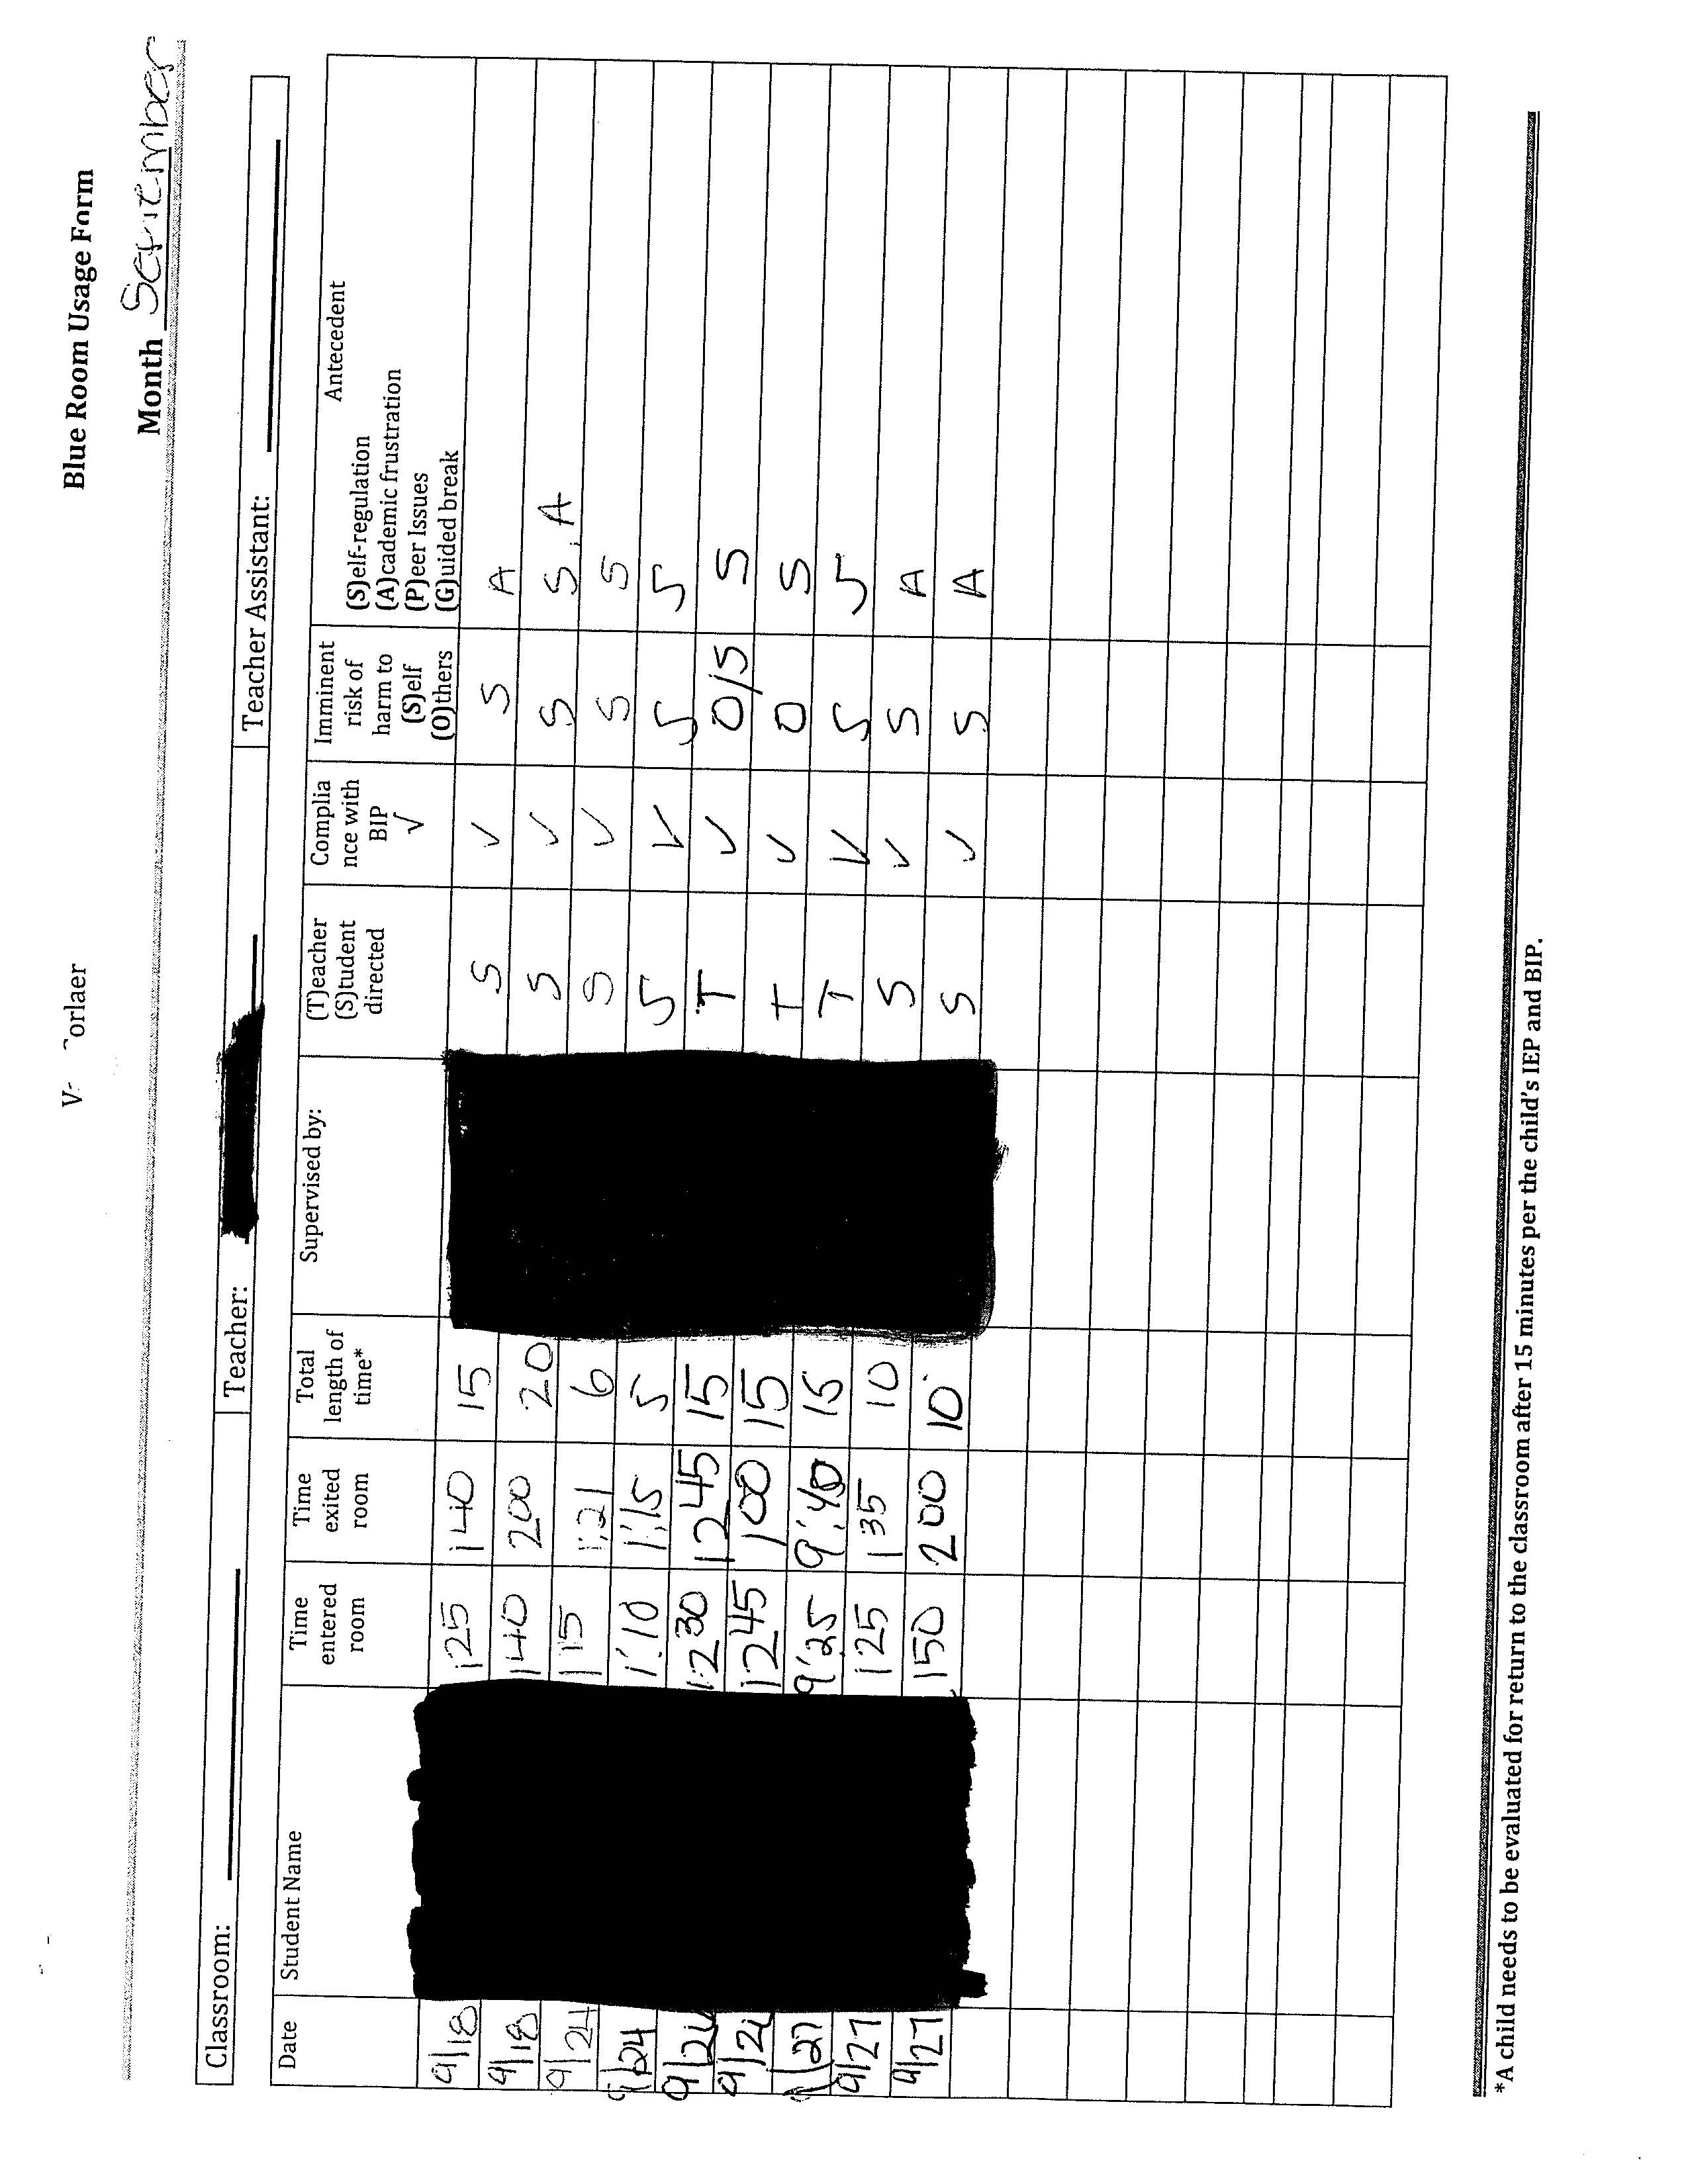 orlaer
Blue Room Usage Form
Month September
Classroom: Teacher: Teacher Assistant:
Date Student Name Time entered room Time exited room Total length of time* Supervised by: (T)eacher (S)tudent directed Complia nce with BIP √ Imminent risk of harm to (S)elf (O)thers Antecedent (S)elf-regulation (A)cademic frustration (P)eer Issues (G)uided break
9/18 125 140 15 S ✓ S A
9/18 140 200 20 S ✓ S S, A
9/24 115 1:21 6 S ✓ S S
9/24 1:10 1:15 5 S ✓ S S
1230 1245 15 T ✓ O/S S
1245 100 15 T ✓ O S
9/27 9:25 9:40 15 T ✓ S S
9/27 125 135 10 S ✓ S A
9/27 150 200 10 S ✓ S A
*A child needs to be evaluated for return to the classroom after 15 minutes per the child's IEP and BIP.